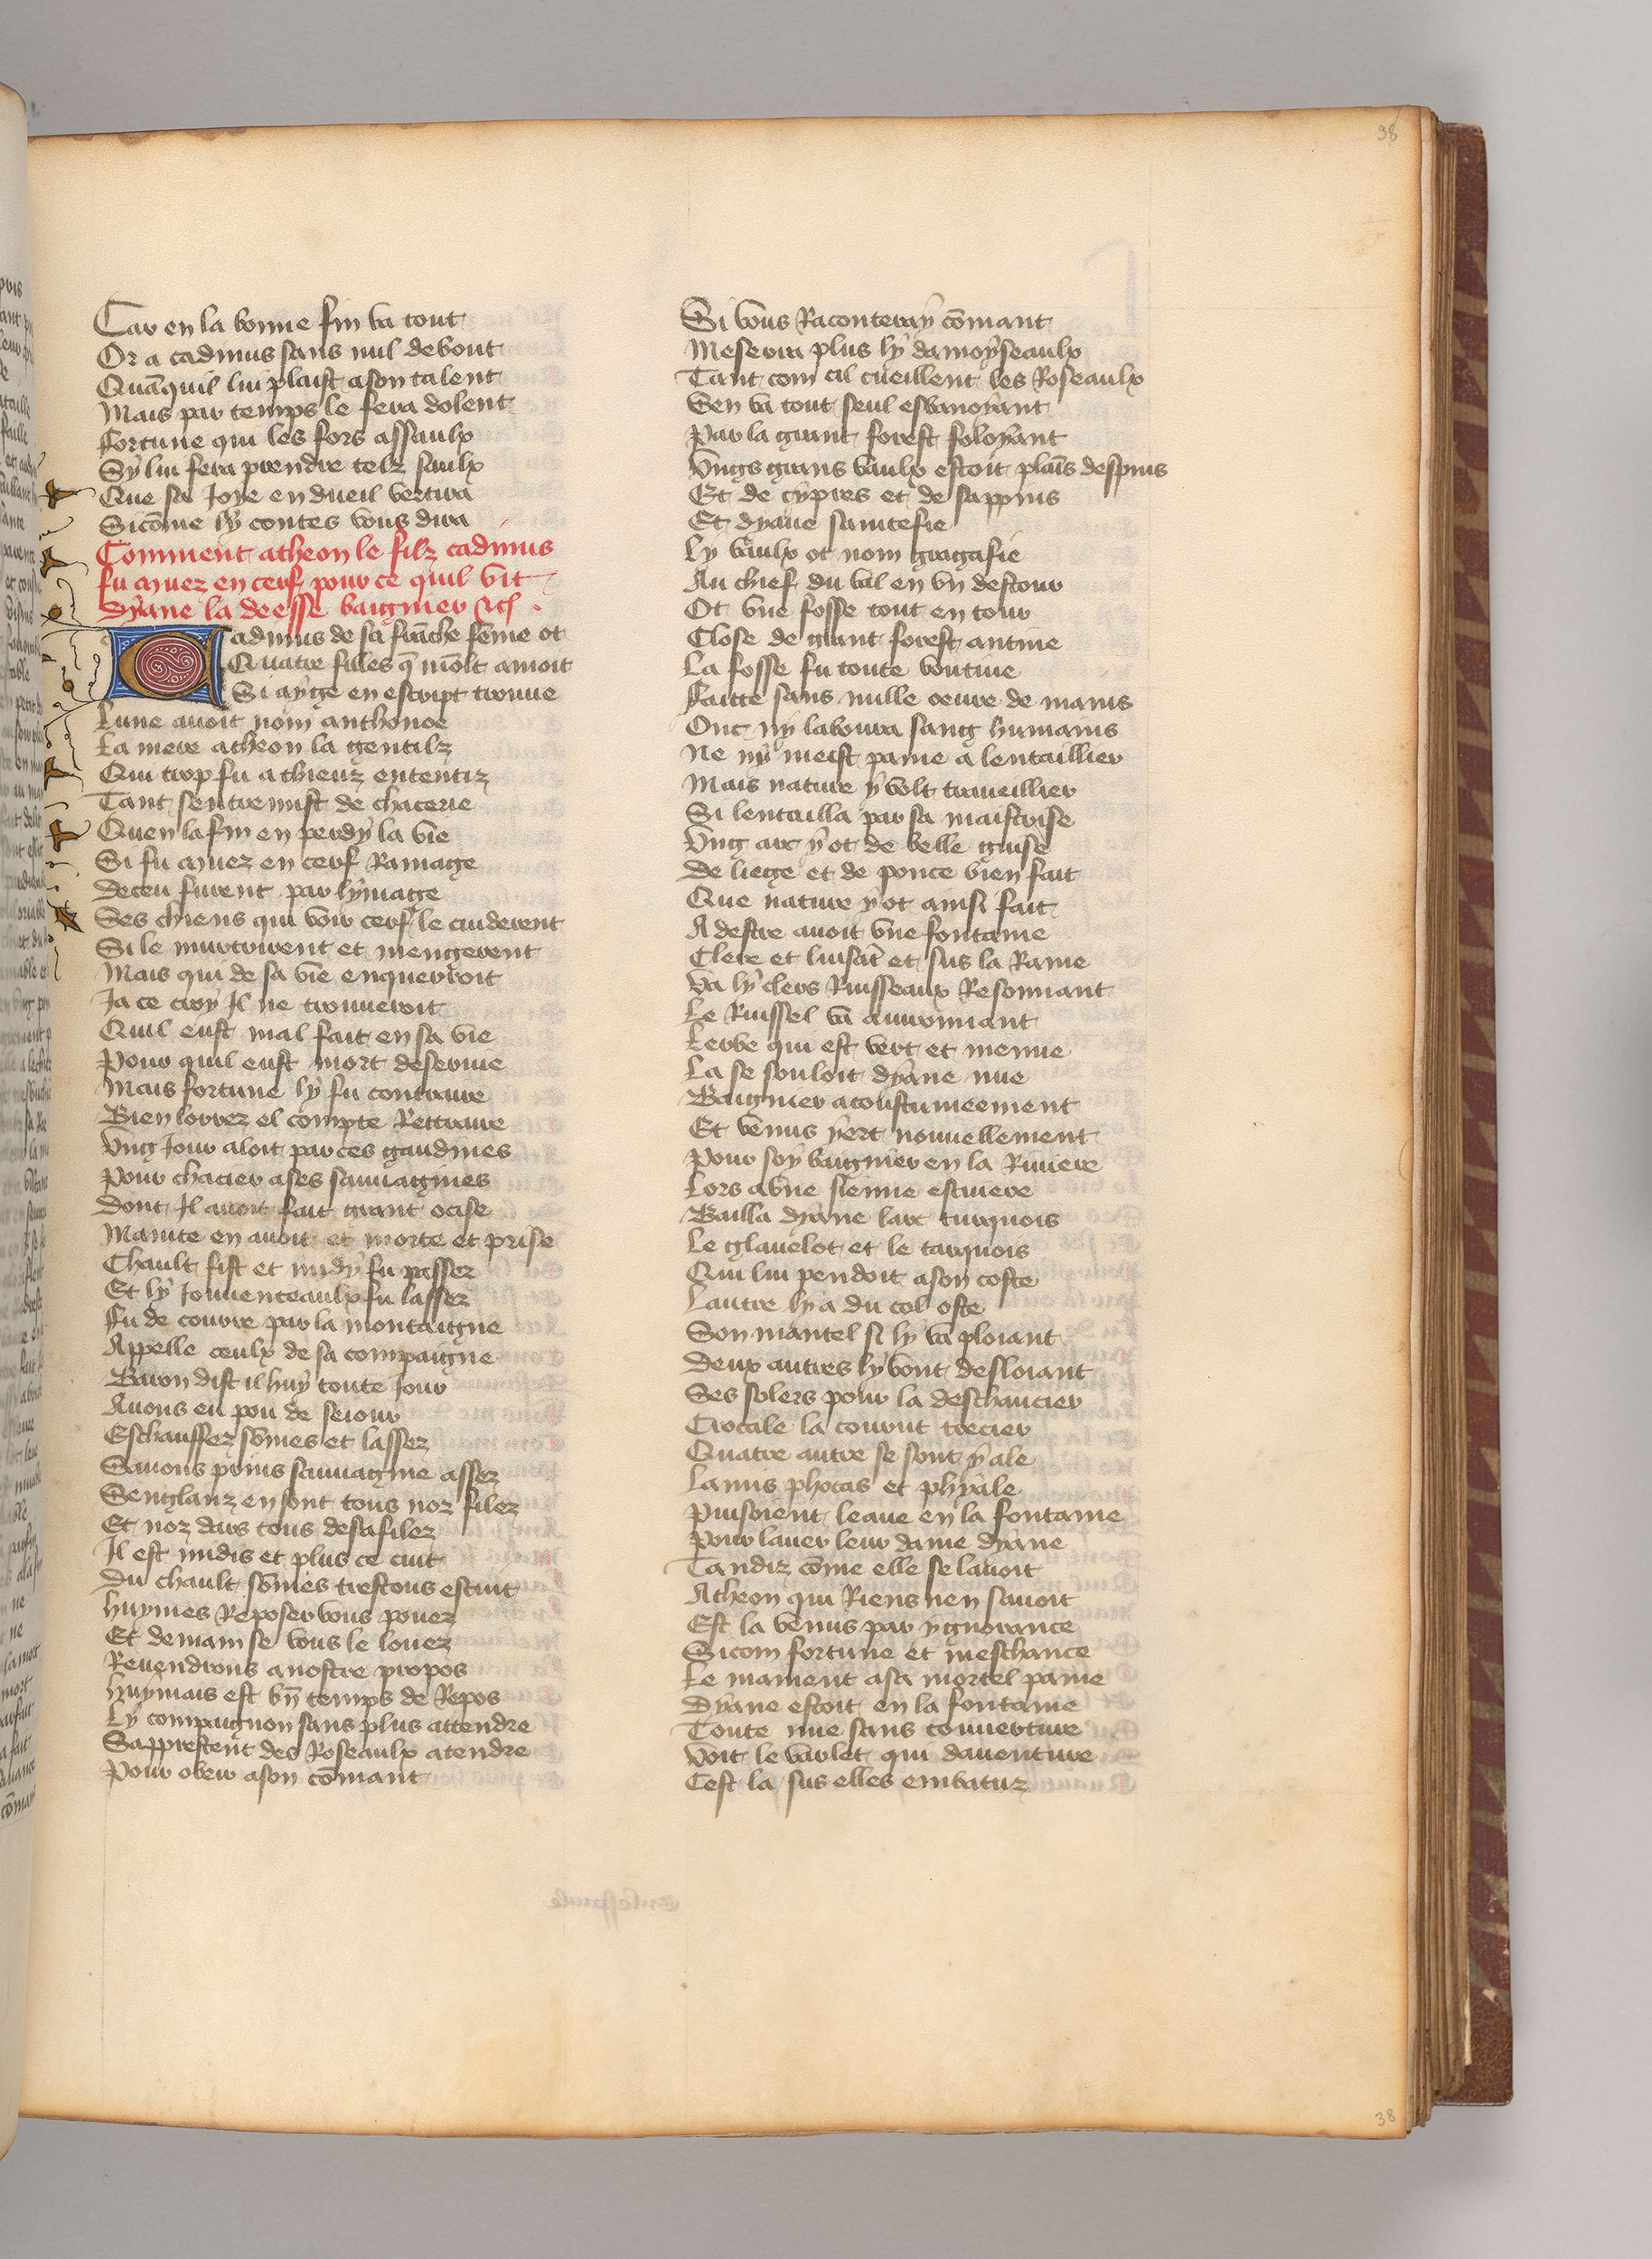 38
Car en la bonne fin va tout
Or a cadmus sans nul debout
Quãquil lui plaist a son talent
Mais par temps le fera dolent
Fortune qui les fors assaulx
Sy lui fera prendre telz saulx
Que sa Joye en dueil vertira
Sicõme ly contes vous dira
Comment atheon le filz cadmus
fu muez en cerf pour ce quil vit
Dyane la deesse baignier
Cadmus de sa frãche fẽme ot
Quatre filles q̃ mõlt amoit
Si ay ge en escript trouue
Lune auoit nom anthonoe
La mere atheon la gentilz
Qui trop fu a chienz ententiz
Tant sentremist de chacerie
Quen la fin en perdy la vie
Si fu muez en cerf Ramage
Deceu furent par lymage
Ses chiens qui voir cerf le cuiderent
Si le murtrirent et mengerent
Mais qui de sa vie enquerroit
Ja ce croy Jl ne trouueroit
Quil eust mal fait en sa vie
Pour quil eust mort deseruie
Mais fortune ly fu contraire
Bien lorrez el compte Rettraire
Vng Jour aloit par ces gaudines
Pour chacier a ses sauuagines
Dont Jl auoit fait grant ocise
Mainte en auoit et morte et prise
Chault fist et midy fu passez
Et ly Jouuenceaulx fu lassez
Fu de courre par la montaigne
Appelle ceulx de sa compaigne
Baron dist il huy toute Jour
Auons eu pou de seiour
Eschauffez sõmes et lassez
Sauons prins sauuagine assez
Senglanz en sont tous noz filez
Et noz dars tous desafilez
Jl est midis et plus ce cuit
Du chault sõmes trestous escuit
Huymes Reposer vous pouez
Et demain se vous le louez
Reuendrons a nostre propos
Huymais est bñ temps de Repos
Ly compaignon sans plus attendre
Sapprestent des Roseaulx atendre
Pour obeir a son cõmant
Si vous Raconteray cõmant
Meserra plus ly damoyseaulx
Tant com cil cueillent les Roseaulx
Sen va tout seul esbanoyant
Par la grant forest foloyant
Vngs grans vaulx estoit plaîs despins
Et de cypres et de sappins
Et dyane saintefie
Ly vaulx ot nom gragafie
Au chief du val en vn destour
Ot vne fosse tout en tour
Close de grant forest antine
La fosse fu toute voutiue
Faitte sans nulle oeure de mains
Onc ny laboura sang humains
Ne ny meist paine a lentaillier
Mais nature y volt traueillier
Si lentailla par sa maistrise
Vng arc y ot de belle guise
De liege et de ponce bien fait
Que nature y ot ainsi fait
A destre auoit vne fontaine
Clere et luisãt et sus la Raine
Va ly clers Ruisseaux Resonnant
Le Ruissel va auironnant
Lerbe qui est vert et menue
La se souloit dyane nue
Baignier acoustumeement
Et venus yert nouuellement
Pour soy baignier en la Riuiere
Lors a vne sienne escuiere
Bailla dyane larc turquois
Le glauelot et le tarquois
Qui lui pendoit a son coste
Lautre ly a du col oste
Son mantel si ly va ploiant
Deux autres ly vont desloiant
Ses solers pour la deschaucier
Crocale la courut trecier
Quatre autre se sont y ale
Lanus phocas et phyale
Puisoient leaue en la fontaine
Pour lauer leur dame dyane
Tandiz cõme elle se lauoit
Atheon qui Riens nen sauoit
Est la venus par ygnorance
Sicom fortune et meschance
Le mainent a sa mortel paine
Dyane estoit en la fontaine
Toute nue sans couuerture
Voit le varlet qui dauenture
Cest la sus elles embatuz
38